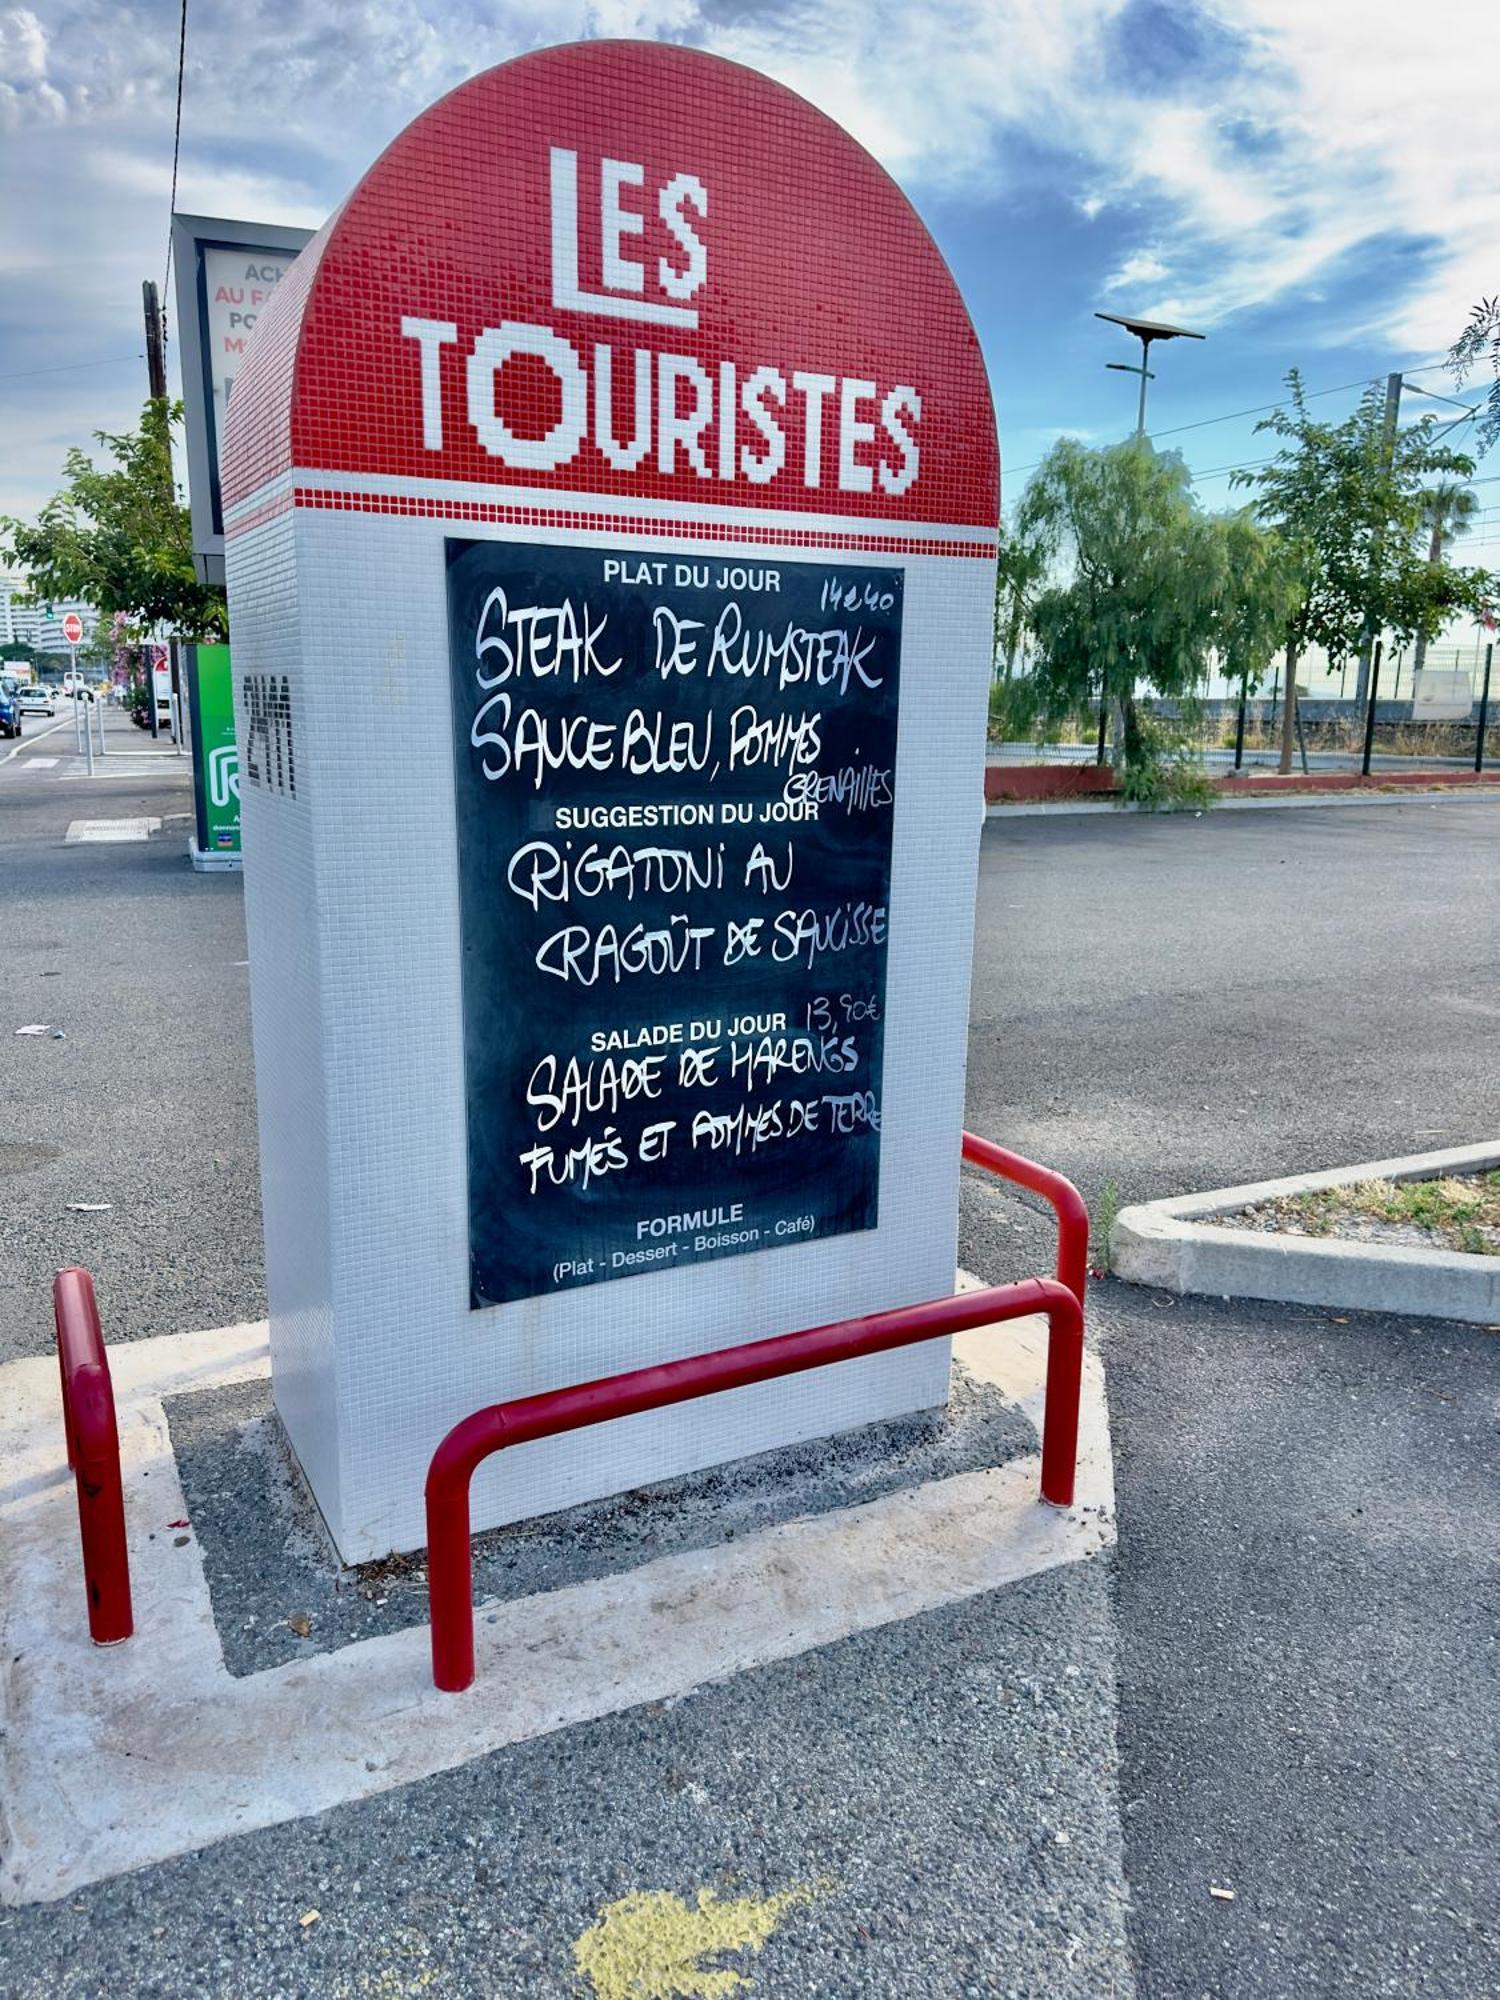 LES
TOURISTES
PLAT DU JOUR
14e40
STEAK DE RUMSTEAK
SAUCE BLEU, POMMES
GRENAILLES
SUGGESTION DU JOUR
RIGATONI AU
RAGOÛT DE SAUCISSE
SALADE DU JOUR 13,90€
SALADE DE HARENGS
FUMÉS ET POMMES DE TERRE
FORMULE
(Plat - Dessert - Boisson - Café)
STOP